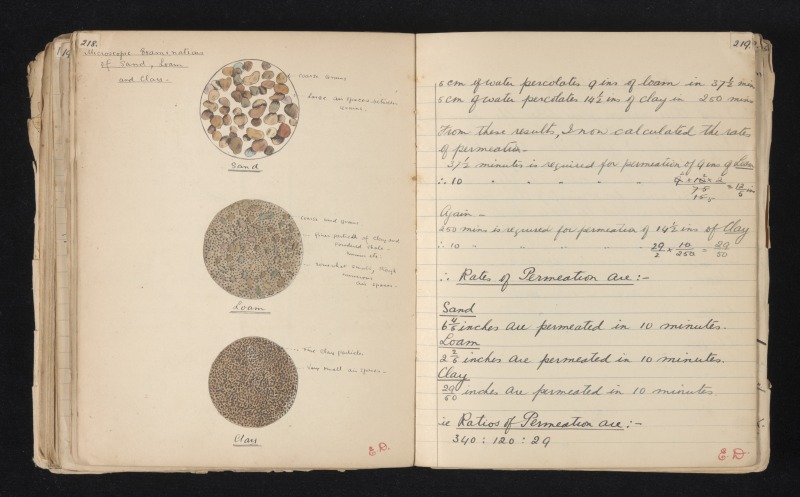 218.
Microscopic Examinations
of Sand, Loam
and Clay.
coarse grains
large air spaces between
grains.
Sand
coarse sand grains
finer particles of clay and
powdered chalk
humus etc:
somewhat small, though
numerous
air spaces.
Loam
Fine clay particles
Very small air spaces.
Clay
E.D.
219.
5 cm of water percolates 9 ins of loam in 37½ min
5 cm of water percolates 14½ ins of clay in 250 mins
From these results, I now calculated the rates
of permeation.
37½ minutes is required for permeation of 9 ins of Loam
∴ 10 " " " " "
= 12/5 in
Again -
250 mins is required for permeation of 14½ ins of Clay
∴ 10 " " " " " 29/2 × 10/250 = 29/50
∴ Rates of Permeation are :-
Sand
6 4/5 inches are permeated in 10 minutes.
Loam
2 2/5 inches are permeated in 10 minutes.
Clay
29/50 inches are permeated in 10 minutes.
ie Ratios of Permeation are :-
340 : 120 : 29
E.D.